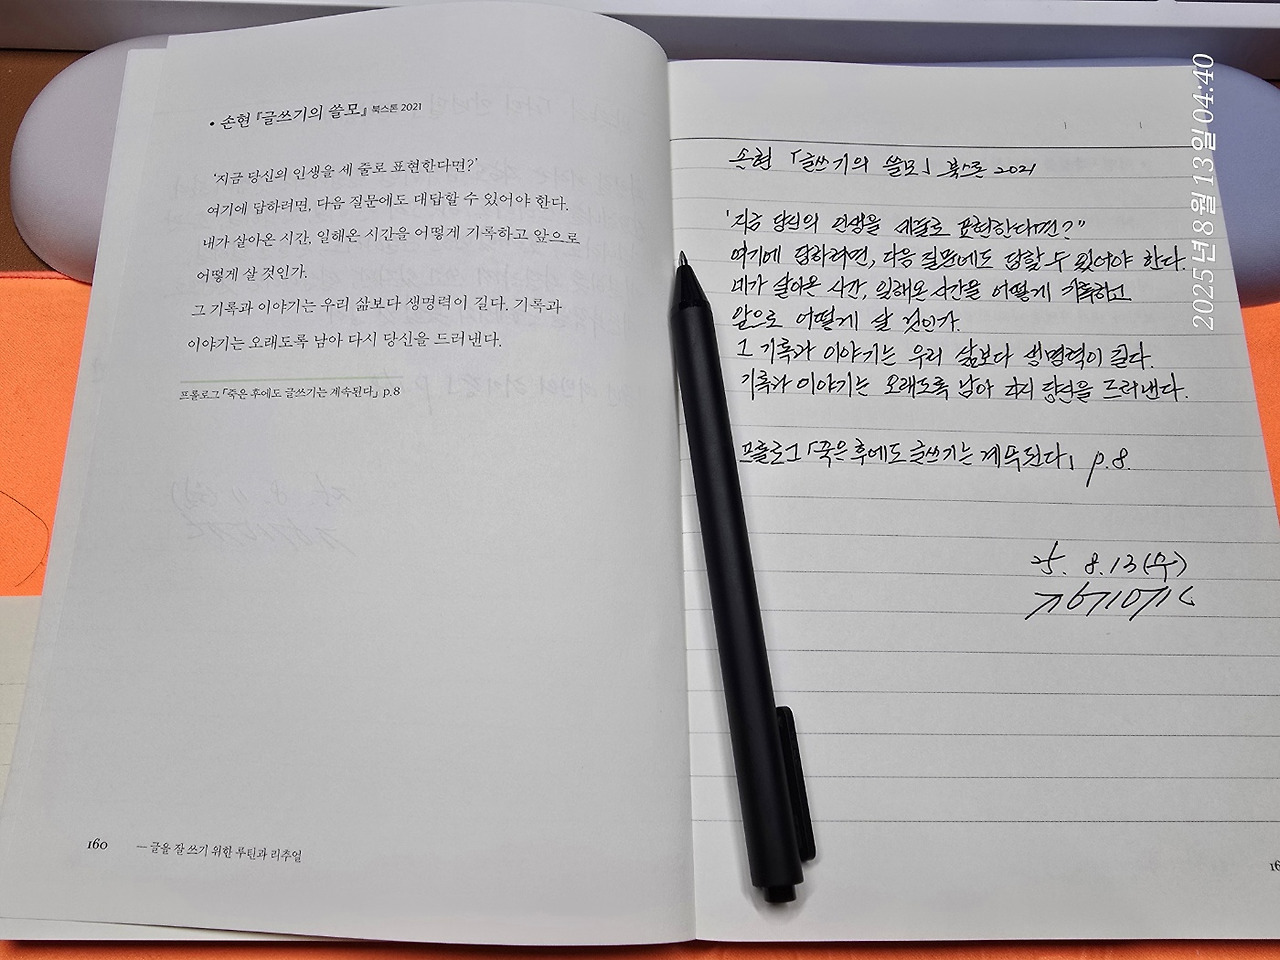 • 손현 『글쓰기의 쓸모』 북스톤 2021
'지금 당신의 인생을 세 줄로 표현한다면?'
여기에 답하려면, 다음 질문에도 대답할 수 있어야 한다.
내가 살아온 시간, 일해온 시간을 어떻게 기록하고 앞으로
어떻게 살 것인가.
그 기록과 이야기는 우리 삶보다 생명력이 길다. 기록과
이야기는 오래도록 남아 다시 당신을 드러낸다.
프롤로그 「죽은 후에도 글쓰기는 계속된다」 p.8
160
— 글을 잘 쓰기 위한 루틴과 리추얼
손현 「글쓰기의 쓸모」 북스톤 2021
'지금 당신의 인생을 세줄로 표현한다면?"
여기에 답하려면, 다음 질문에도 답할 수 있어야 한다.
내가 살아온 시간, 일해온 시간을 어떻게 기록하고
앞으로 어떻게 살 것인가.
그 기록과 이야기는 우리 삶보다 생명력이 길다.
기록과 이야기는 오래도록 남아 다시 당신을 드러낸다.
프롤로그 「죽은 후에도 글쓰기는 계속된다」 p.8.
25. 8.13(수)
16
2025년 8월 13일 04:40